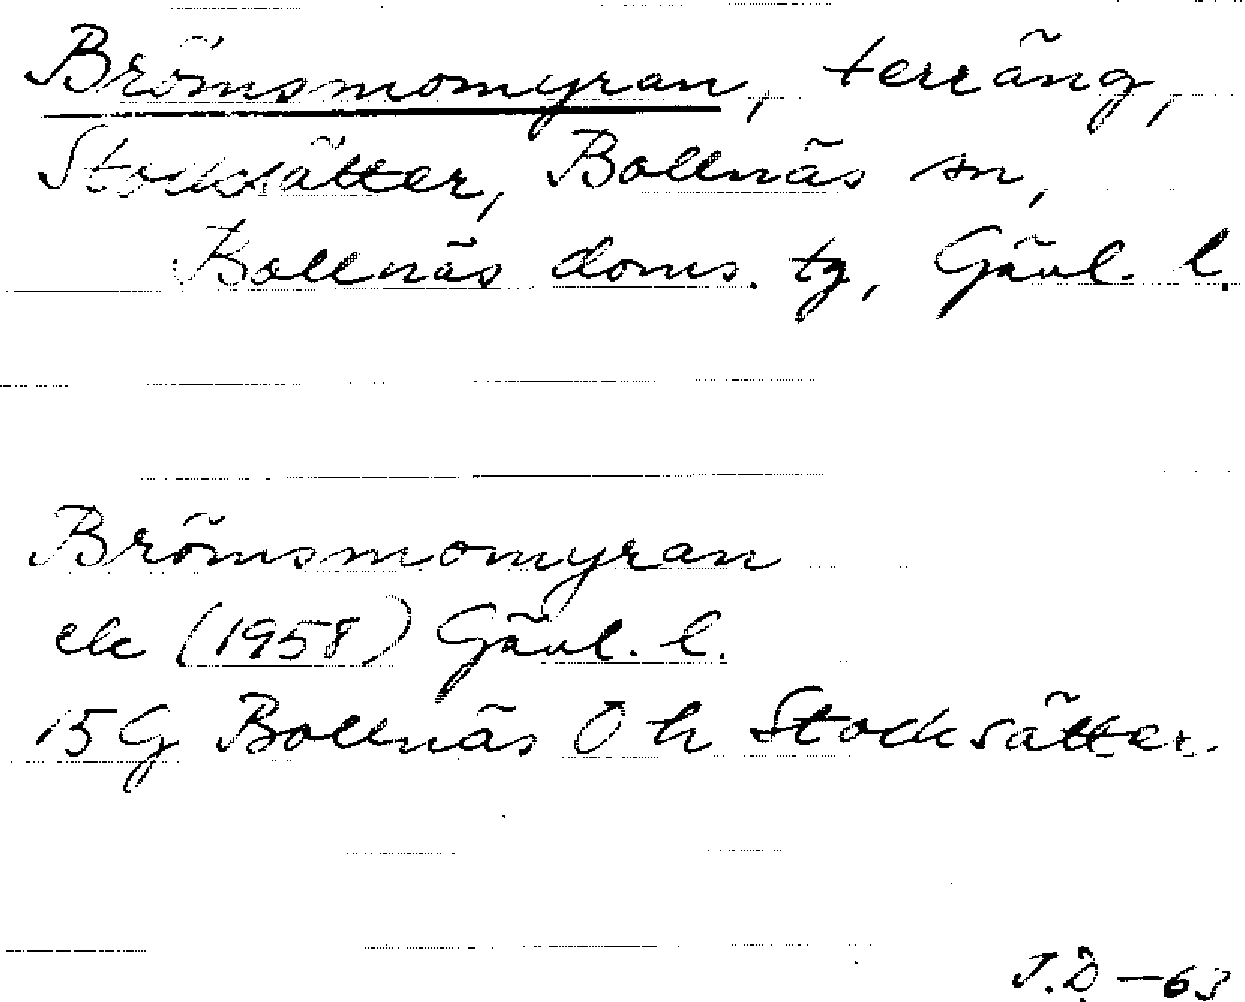 Brömsmomyran, terräng,
Stocksätter, Bollnäs sn,
Bollnäs doms. tg, Gävl. l.
Brömsmomyran
ek (1958) Gävl. l.
15G Bollnäs Ö h Stocksätter.
J.Ö. - 63